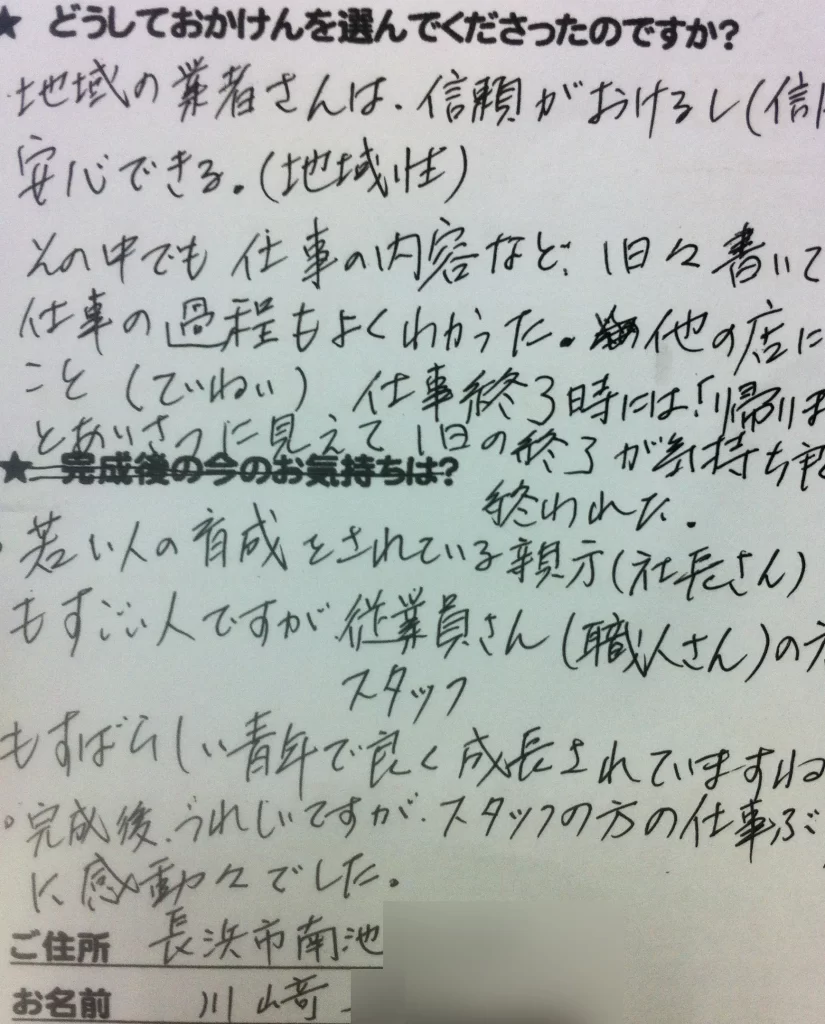 ★ どうしておかけんを選んでくださったのですか?
・地域の業者さんは、信頼がおけるし(信
安心できる。(地域性)
その中でも 仕事の内容など、1日々書いて
仕事の過程もよくわかった。他の店に
こと (ていねい) 仕事終了時には「帰りま
とあいさつに見えて 1日の終了が気持ち
★ 完成後の今のお気持ちは?
終われた。
・若い人の育成をされている親方(社長さん)
もすごい人ですが 従業員さん(職人さん)の方
スタッフ
もすばらしい青年で良く成長されていますね
。完成後、うれしいですが、スタッフの方の仕事ぶ
に感動々でした。
ご住所 長浜市南池
お名前 川崎